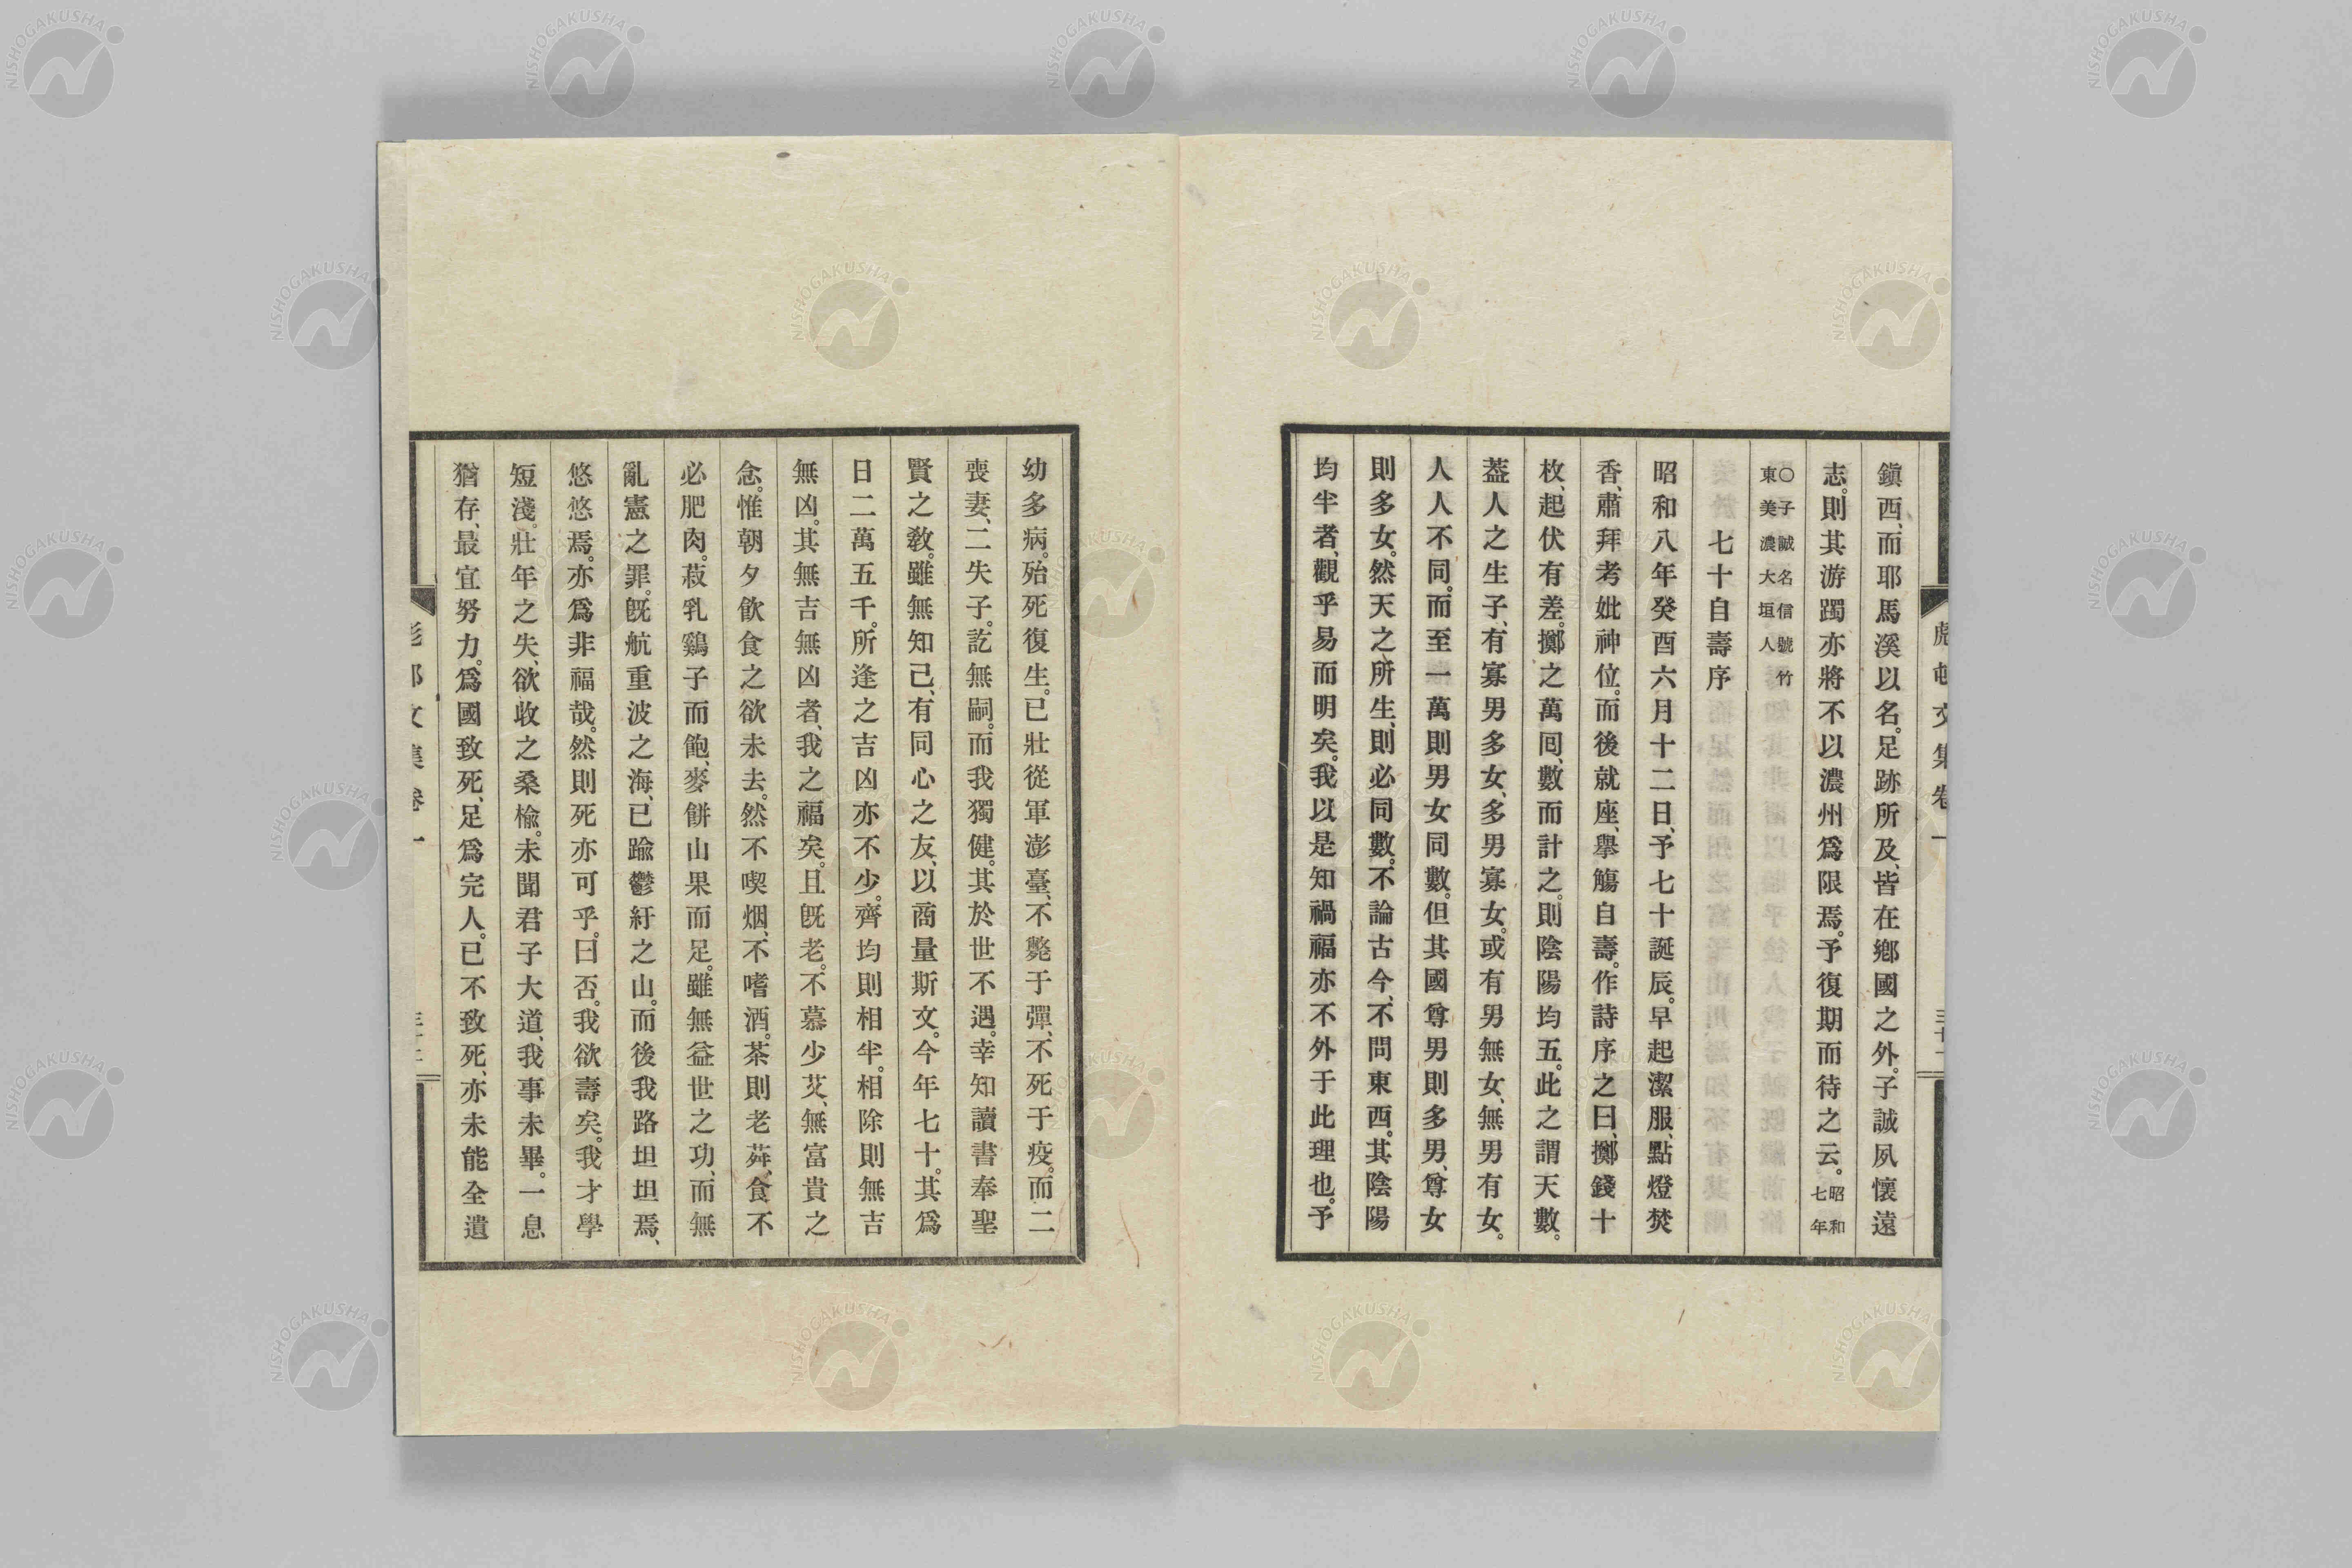 鎭西、而耶馬溪以名。足跡所及、皆在鄕國之外。子誠夙懷遠
志。則其游躅亦將不以濃州爲限焉。予復期而待之云。昭和
七年
○子誠名信號竹
東美濃大垣人
七十自壽序
昭和八年癸酉六月十二日、予七十誕辰。早起潔服、點燈焚
香、肅拜考妣神位。而後就座、擧觴自壽。作詩序之曰、擲錢十
枚、起伏有差。擲之萬囘、數而計之。則陰陽均五。此之謂天數。
葢人之生子、有寡男多女、多男寡女。或有男無女、無男有女。
人人不同。而至一萬則男女同數。但其國尊男則多男、尊女
則多女。然天之所生、則必同數。不論古今、不問東西。其陰陽
均半者、觀乎易而明矣。我以是知禍福亦不外于此理也。予
幼多病。殆死復生。已壯從軍澎臺、不斃于彈、不死于疫。而二
喪妻、二失子。訖無嗣。而我獨健。其於世不遇。幸知讀書奉聖
賢之敎。雖無知己、有同心之友、以商量斯文。今年七十。其爲
日二萬五千。所逢之吉凶亦不少。齊均則相半。相除則無吉
無凶。其無吉無凶者、我之福矣。且旣老。不慕少艾、無富貴之
念。惟朝夕飮食之欲未去。然不喫烟、不嗜酒。茶則老荈、食不
必肥肉。菽乳鷄子而飽、麥餠山果而足。雖無益世之功、而無
亂憲之罪。旣航重波之海、已踰鬱紆之山。而後我路坦坦焉、
悠悠焉。亦爲非福哉。然則死亦可乎。曰否。我欲壽矣。我才學
短淺。壯年之失、欲收之桑楡。未聞君子大道、我事未畢。一息
猶存、最宜努力。爲國致死、足爲完人。已不致死、亦未能全遺
文集卷一